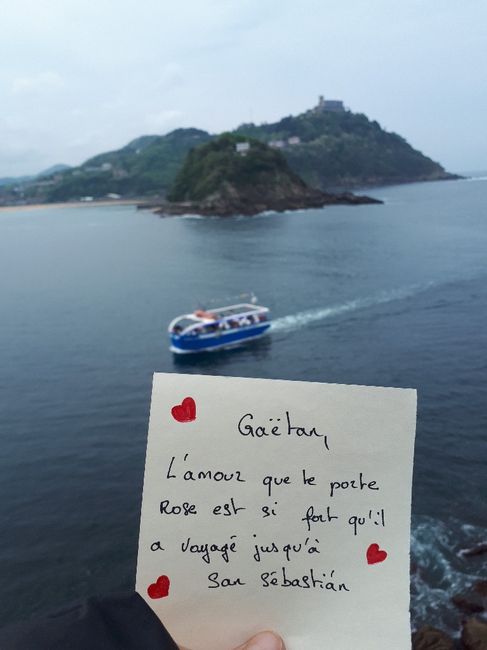 Gaëtan,
L'amour que te porte
Rose est si fort qu'il
a voyagé jusqu'à
San Sébastián